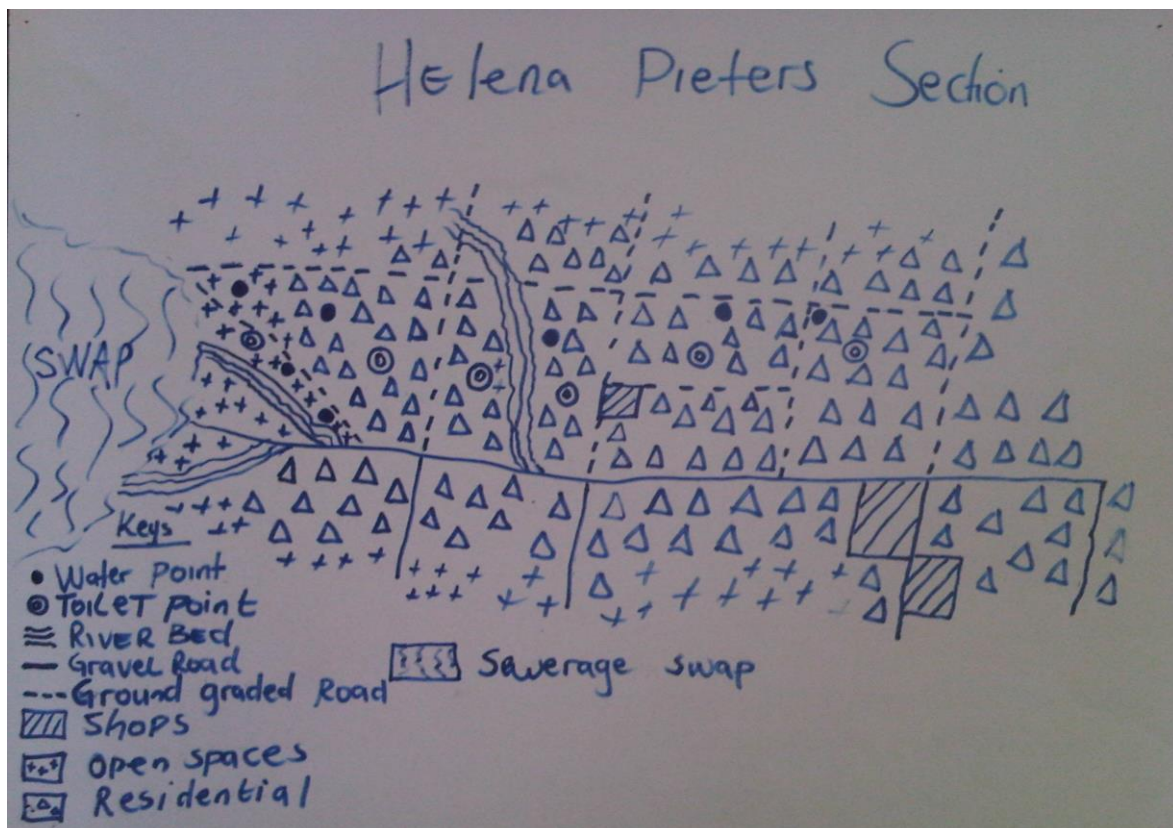 Helena Pieters Section
SWAP
Keys
Water point
TOILET point
RIVER BED
Gravel Road
Ground graded Road
Shops
open spaces
Residential
Sewerage swap